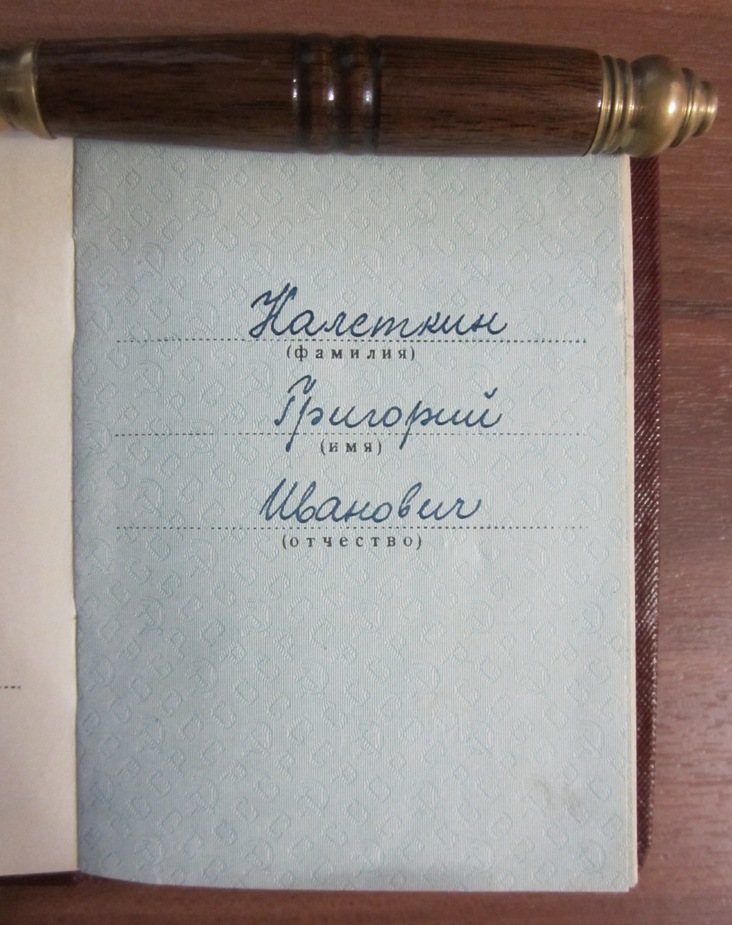 Налеткин
(фамилия)
Григорий
(имя)
Иванович
(отчество)